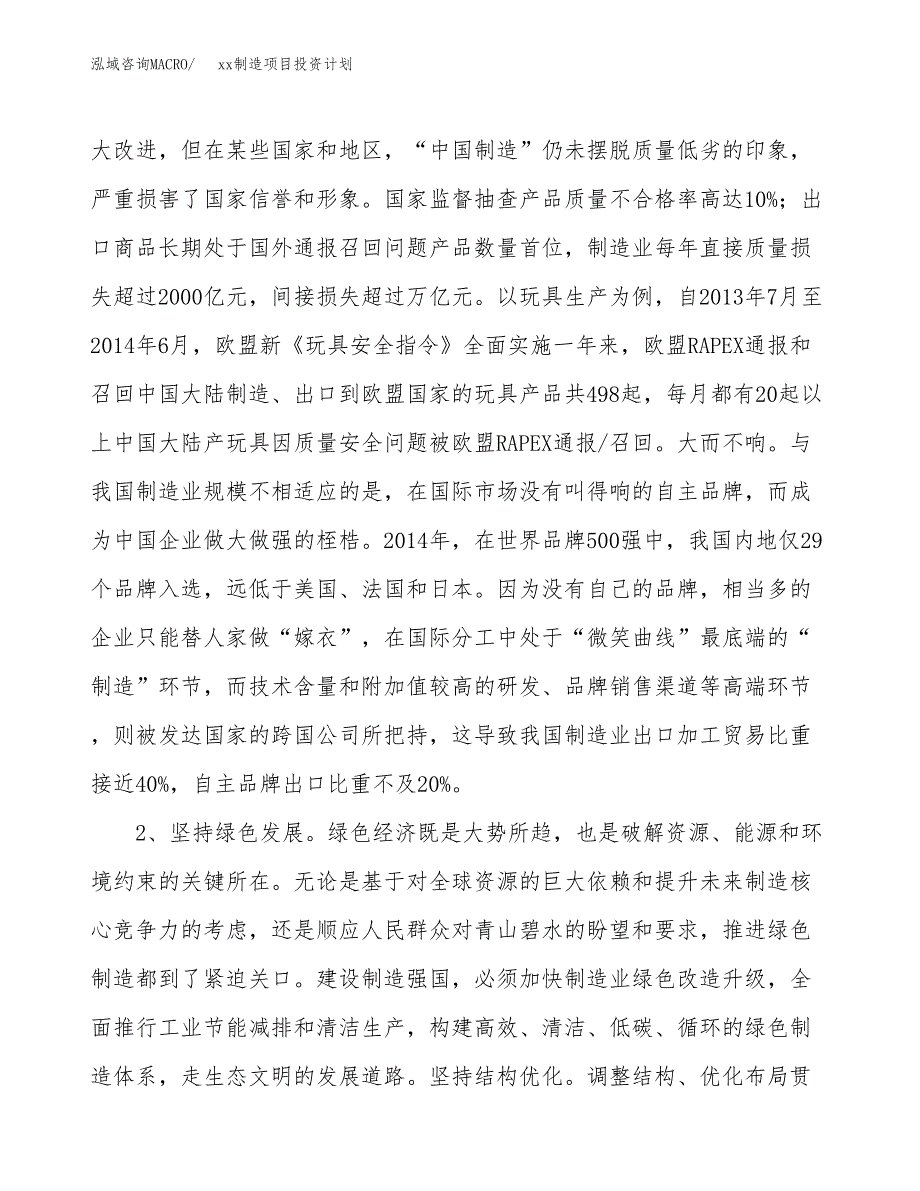 泓域咨询MACRO/ xx制造项目投资计划
大改进，但在某些国家和地区，“中国制造”仍未摆脱质量低劣的印象，
严重损害了国家信誉和形象。国家监督抽查产品质量不合格率高达10%；出
口商品长期处于国外通报召回问题产品数量首位，制造业每年直接质量损
失超过2000亿元，间接损失超过万亿元。以玩具生产为例，自2013年7月至
2014年6月，欧盟新《玩具安全指令》全面实施一年来，欧盟RAPEX通报和
召回中国大陆制造、出口到欧盟国家的玩具产品共498起，每月都有20起以
上中国大陆产玩具因质量安全问题被欧盟RAPEX通报/召回。大而不响。与
我国制造业规模不相适应的是，在国际市场没有叫得响的自主品牌，而成
为中国企业做大做强的桎梏。2014年，在世界品牌500强中，我国内地仅29
个品牌入选，远低于美国、法国和日本。因为没有自己的品牌，相当多的
企业只能替人家做“嫁衣”，在国际分工中处于“微笑曲线”最底端的“
制造”环节，而技术含量和附加值较高的研发、品牌销售渠道等高端环节
，则被发达国家的跨国公司所把持，这导致我国制造业出口加工贸易比重
接近40%，自主品牌出口比重不及20%。
2、坚持绿色发展。绿色经济既是大势所趋，也是破解资源、能源和环
境约束的关键所在。无论是基于对全球资源的巨大依赖和提升未来制造核
心竞争力的考虑，还是顺应人民群众对青山碧水的盼望和要求，推进绿色
制造都到了紧迫关口。建设制造强国，必须加快制造业绿色改造升级，全
面推行工业节能减排和清洁生产，构建高效、清洁、低碳、循环的绿色制
造体系，走生态文明的发展道路。坚持结构优化。调整结构、优化布局贯